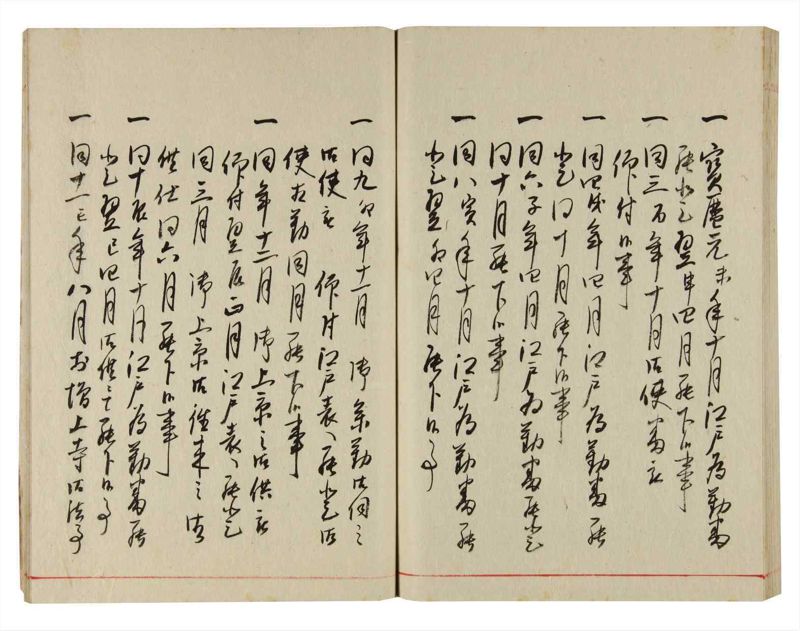 一 寶暦元未年十月江戸為勤番
罷登翌申四月罷下候事
一 同三酉年十月御使番被
仰付候事
一 同四戌年四月江戸為勤番罷
登同十月罷下候事
一 同六子年四月江戸為勤番罷登
同十月罷下候事
一 同八寅年十月江戸為勤番罷
登翌卯四月罷下候事
一 同九卯年十二月 御参勤御伺之
御使被 仰付江戸表へ罷登御
使相勤同月罷下候事
一 同年十二月 御上京之御供被
仰付翌辰正月江戸表へ罷登
同三月 御上京御往来之御
供仕同六月罷下候事
一 同十辰年十月江戸為勤番罷
登翌巳四月御供ニて罷下候事
一 同十一巳年八月於増上寺御法事